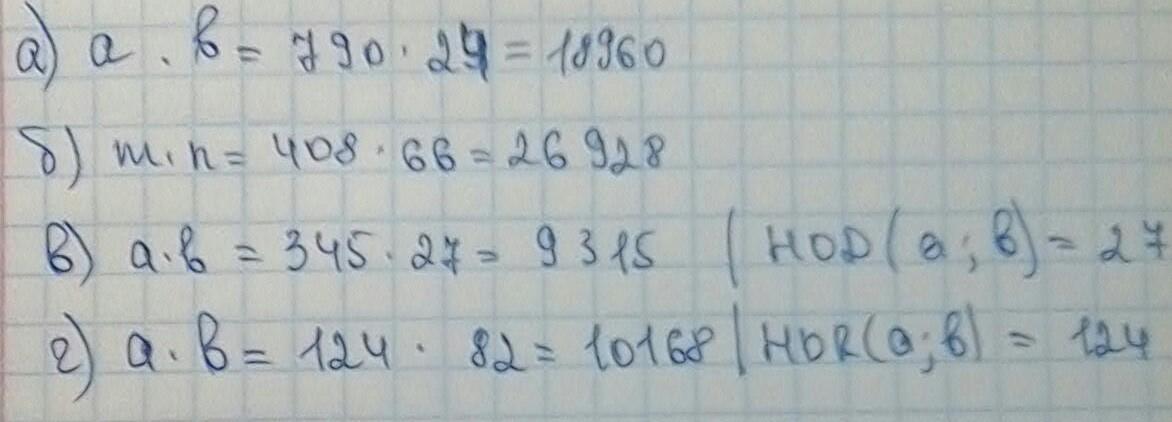 а) a · b = 790 · 24 = 18960
б) m · n = 408 · 66 = 26 928
в) a · b = 345 · 27 = 9 315 | НОD (a ; b) = 27
г) a · b = 124 · 82 = 10168 | НОК (a ; b) = 124